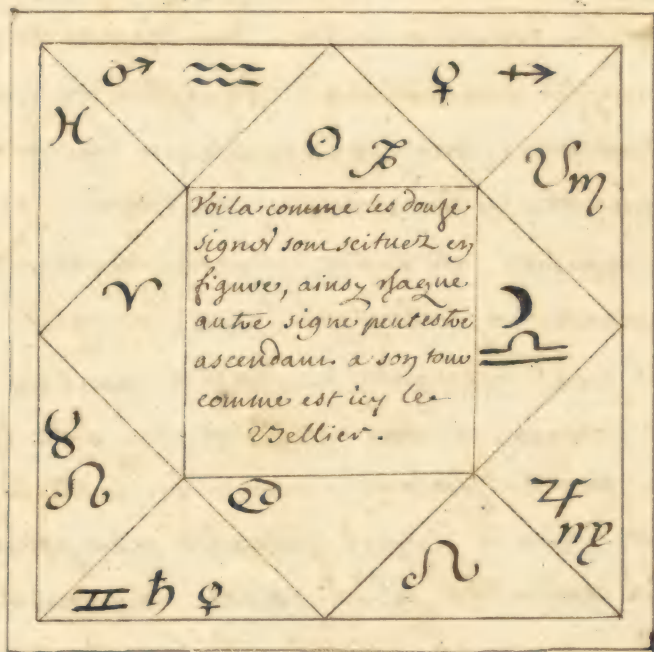 ♂ ♒ ♀ ♐
♓ ☉ ♑ ☋ ♏
Voila comme les douze
signes sont scituez en
figure, ainsy chaque
autre signe peut estre
ascendant a son tour
comme est icy le
Bellier.
♈ ☽
♎
♉
☊ ♋ ♃
♍
♊ ♄ ☿ ♌